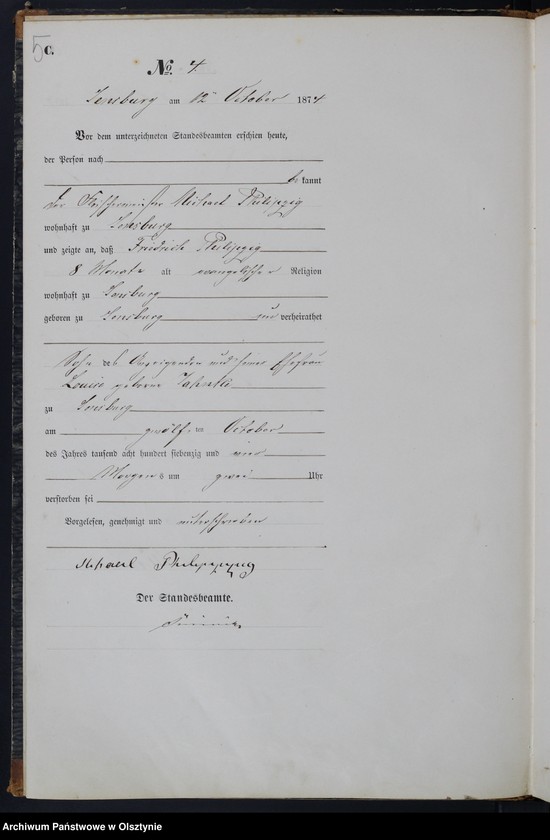 5 C.
No. 4
Sensburg am 12 October 1874
Vor dem unterzeichneten Standesbeamten erschien heute,
der Person nach
bekannt
der Michael
wohnhaft zu Sensburg
und zeigte an, daß Friedrich
8 Monate alt evangelischer Religion
wohnhaft zu Sensburg
geboren zu Sensburg unverheirathet
Sohn des Anzeigenden und seiner Ehefrau
Louise geborne
zu Sensburg
am zwölften October
des Jahres tausend acht hundert siebenzig und vier
Morgens um zwei Uhr
verstorben sei
Vorgelesen, genehmigt und unterschrieben
Der Standesbeamte.
Archiwum Państwowe w Olsztynie